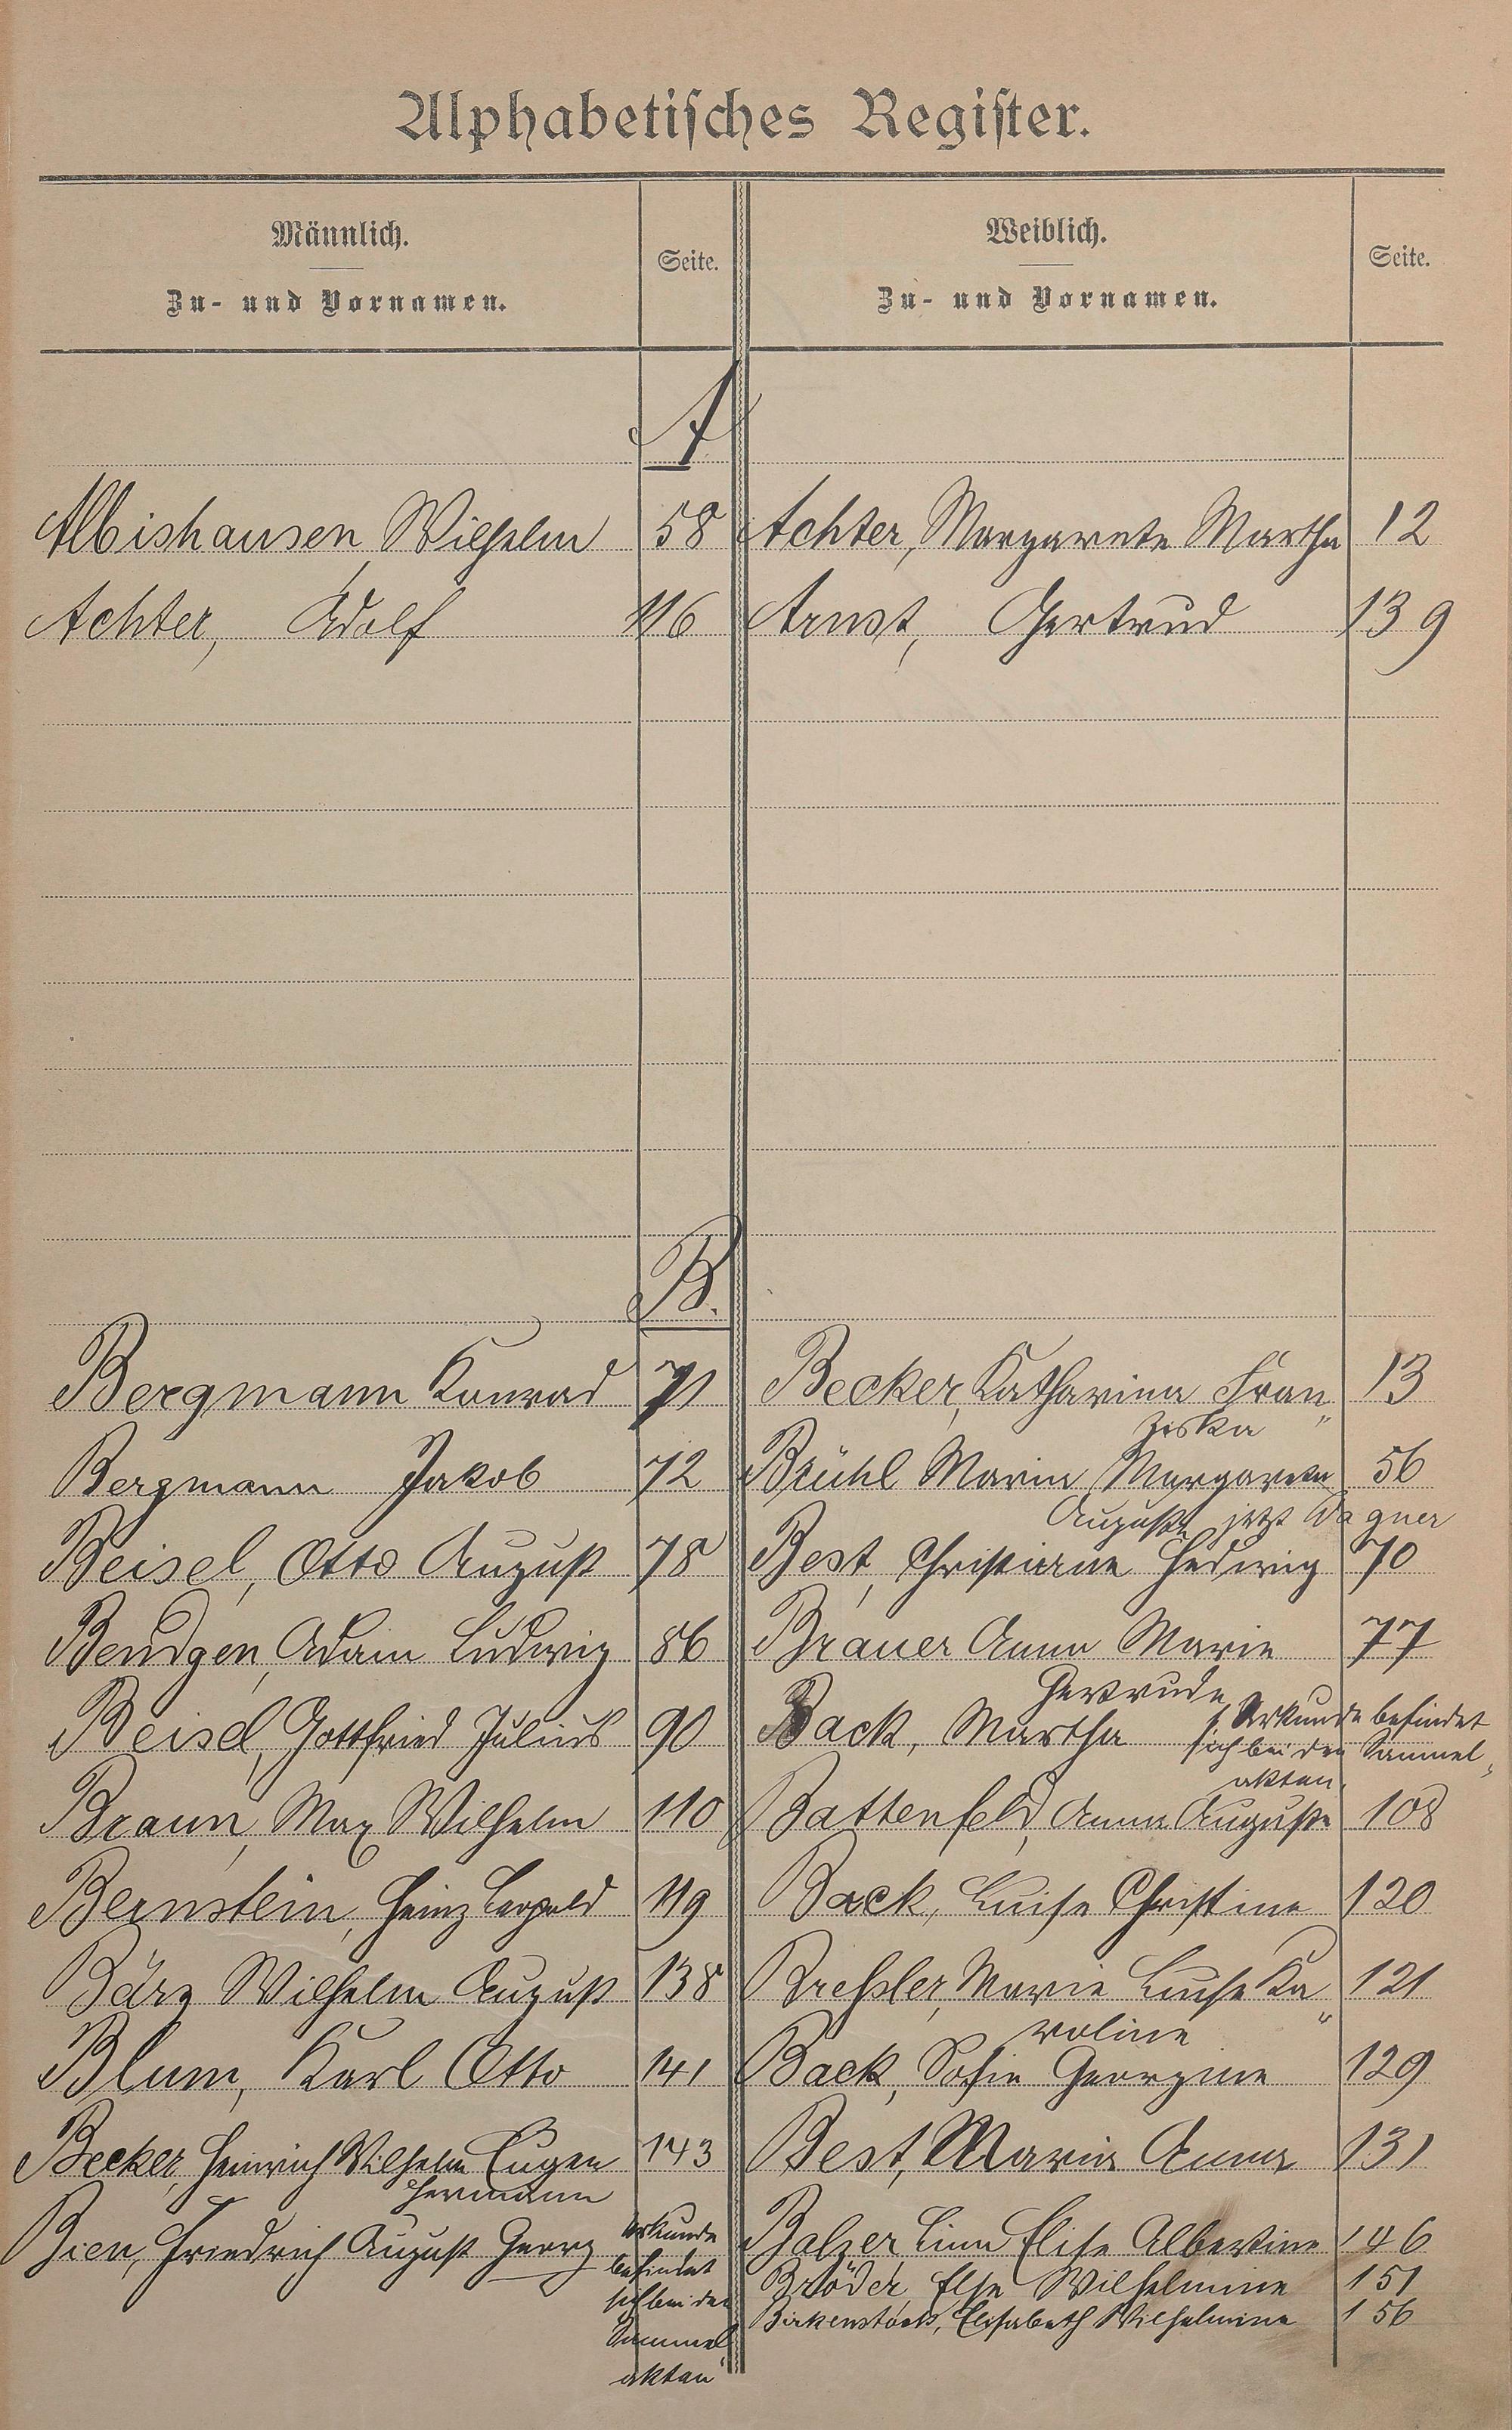 Alphabetisches Register.
Männlich.
Zu- und Vornamen.
Seite.
Weiblich.
Zu- und Vornamen.
Seite.
A
Albishausen, Wilhelm 58
Achter, Adolf 116
Achter, Margarete Martha 12
Arnst, Gertrud 139
B.
Bergmann Konrad 71
Bergmann Jakob 72
Beisel, Otto August 78
Bendgen, Adam Ludwig 86
Beisel, Gottfried Julius 90
Braun, Max Wilhelm 110
Bernstein, Heinz Leopold 119
Bärz Wilhelm August 138
Blum, Karl Otto 141
Becker, Heinrich Wilhelm Eugen 143
Hermann
Bien, Friedrich August Georg Urkunde
befindet
sich bei den
Sammel
akten
Becker, Katharina Fran„ 13
ziska
Brühl Maria Margareta 56
Auguste jetzt Wagner
Best, Christiane Hedwig 70
Brauer Anna Marie 77
Gertrude
Back, Martha s. Urkunde befindet
sich bei den Sammel„
akten.
Battenfeld, Anna Auguste 108
Back, Luise Christine 120
Breßler, Marie Luise Ka„ 121
roline
Back, Sofie Georgine 129
Best, Maria Anna 131
Balzer, Lina Elise Albertine 146
Bröder, Else Wilhelmine 151
Birkenstock, Elisabeth Wilhelmine 156